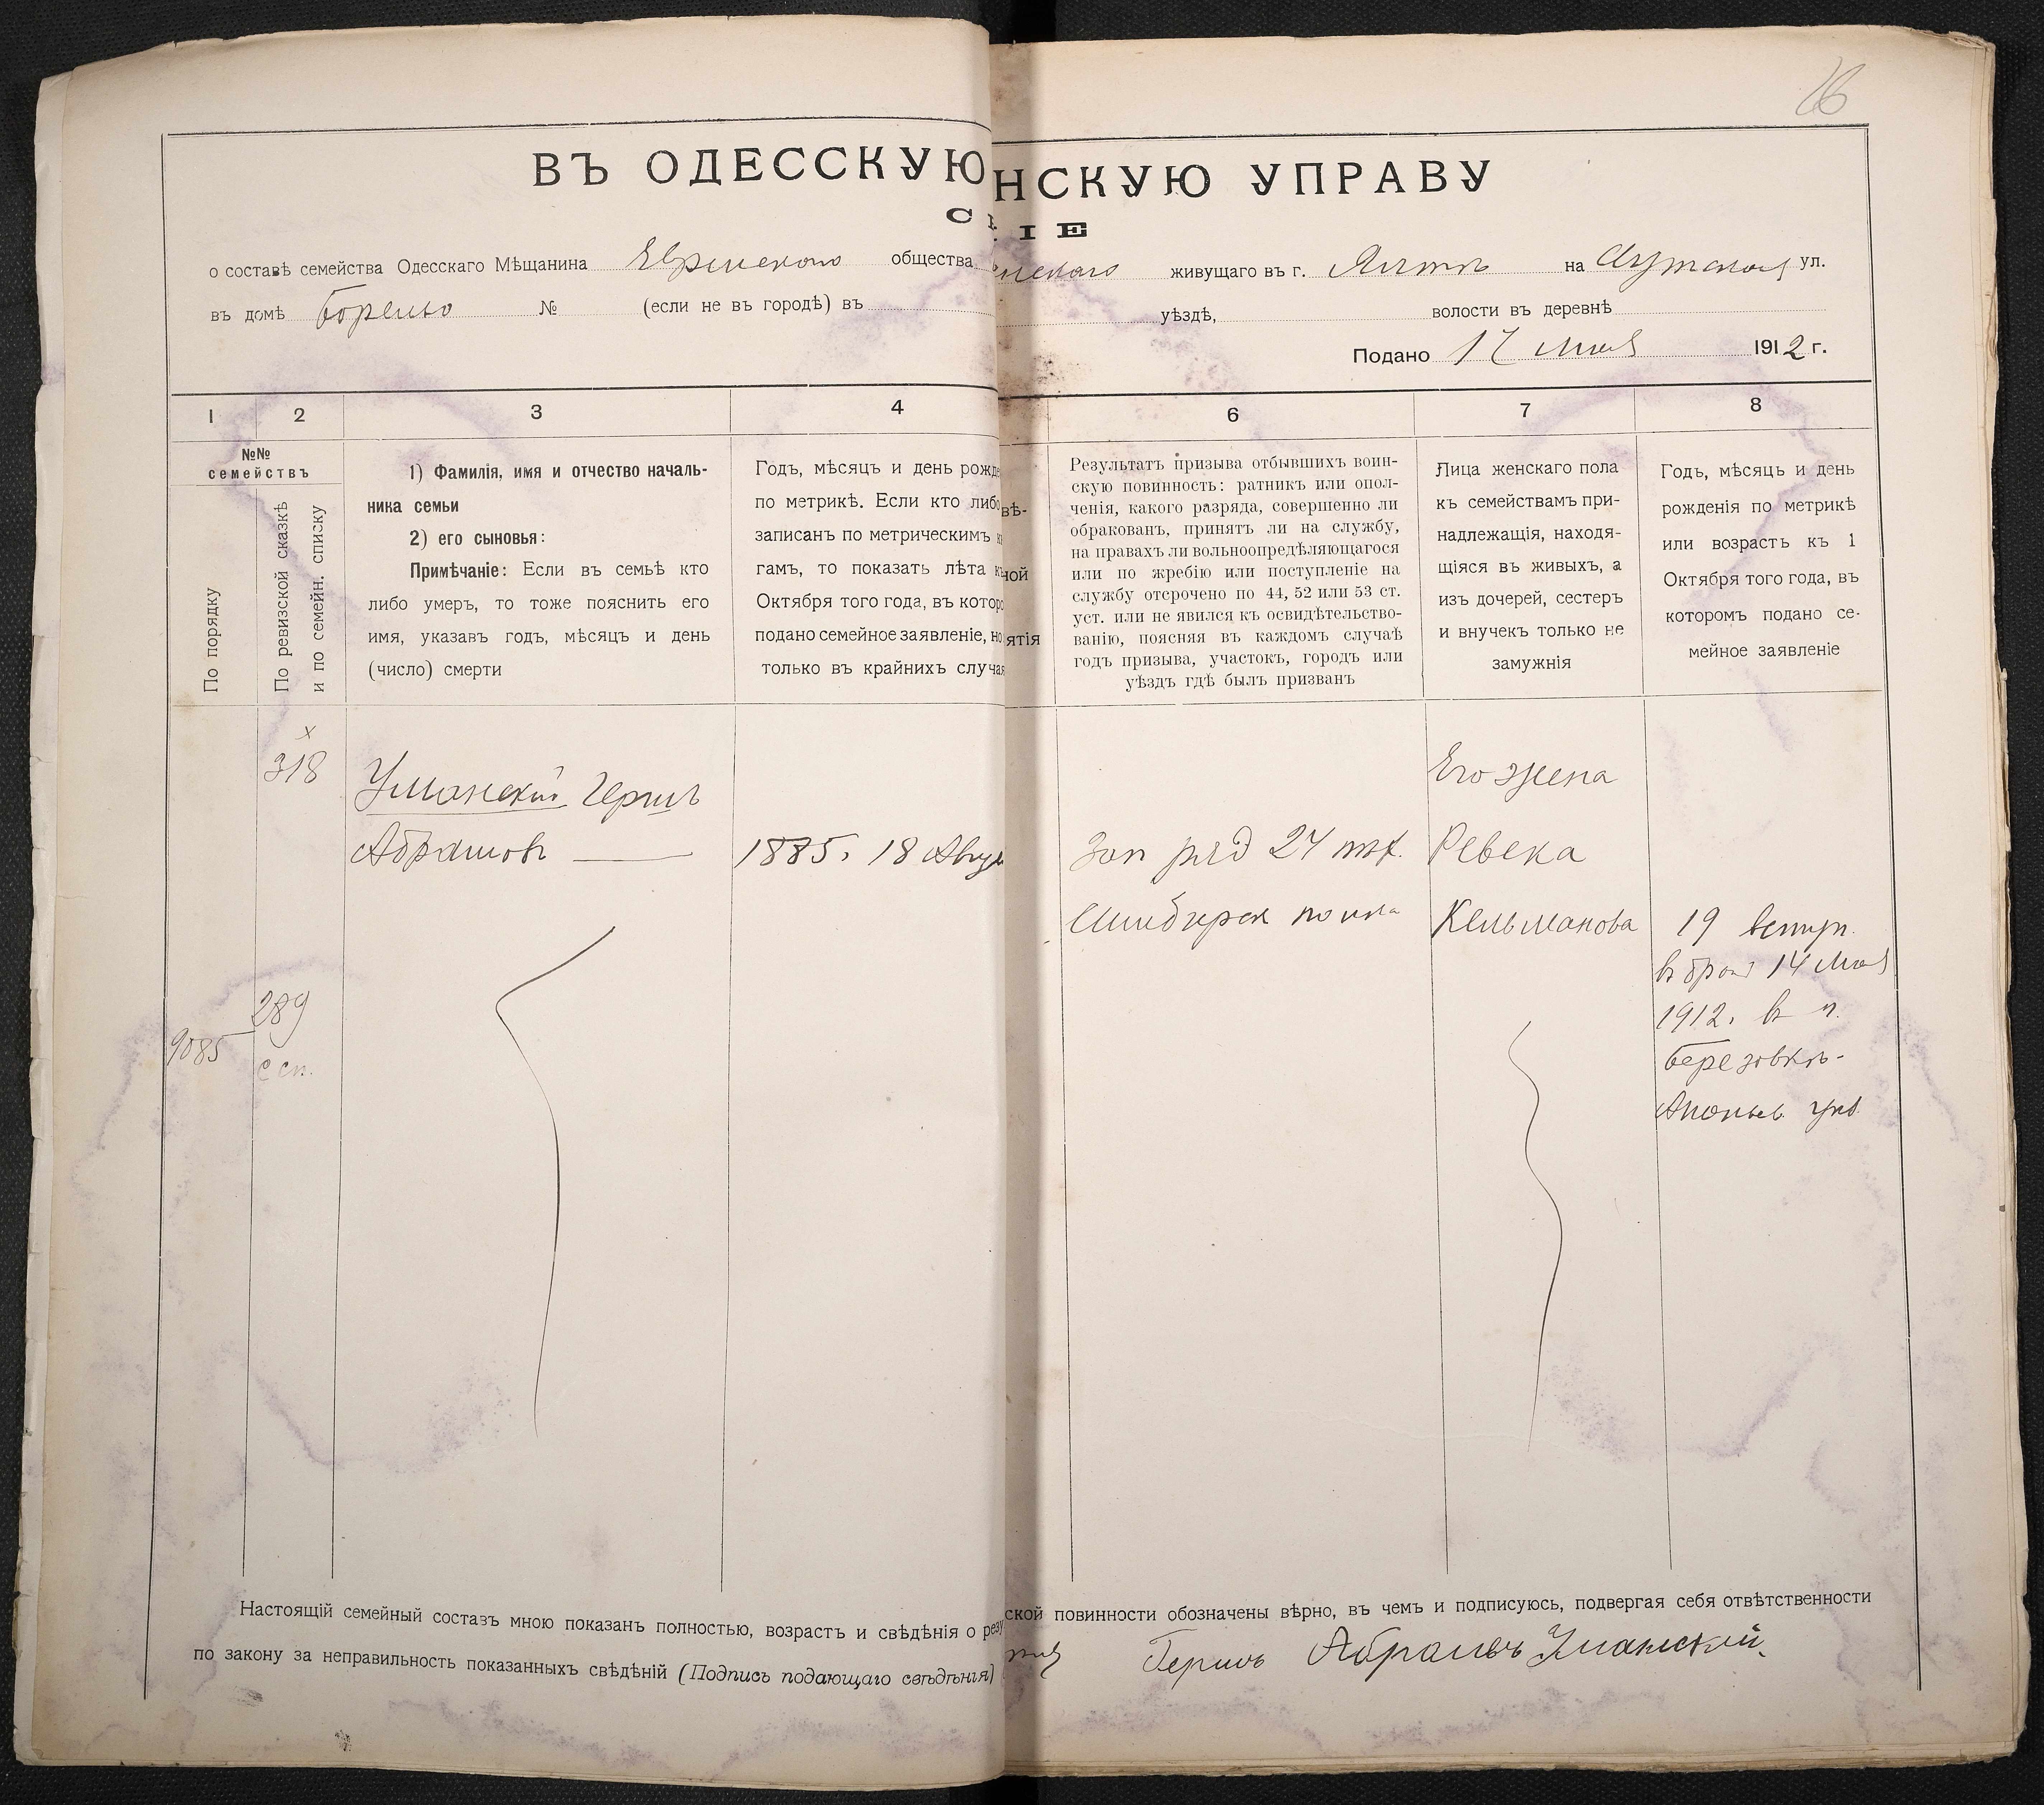 26
ВЪ ОДЕССКУЮ НСКУЮ УПРАВУ
С ІЕ
о составѣ семейства Одесскаго Мѣщанина Еврейскаго общества нскаго живущаго въ г. Ялтѣ на Аутской ул.
въ домѣ № (если не въ городѣ) въ уѣздѣ, волости въ деревнѣ
Подано 17 Мая 1912 г.
1 2 3 4 6 7 8
№№
семействъ
По порядку
По ревизской сказкѣ
и по семейн. списку
1) Фамилія, имя и отчество началь-
ника семьи
2) его сыновья:
Примѣчаніе: Если въ семьѣ кто
либо умеръ, то тоже пояснить его
имя, указавъ годъ, мѣсяцъ и день
(число) смерти
Годъ, мѣсяцъ и день рожд
по метрикѣ. Если кто либо
записанъ по метрическимъ
гамъ, то показать лѣта къ
Октября того года, въ котор
подано семейное заявленіе, но
только въ крайнихъ случа
вѣ-
ной
ятія
Результатъ призыва отбывшихъ воин-
скую повинность: ратникъ или опол-
ченія, какого разряда, совершенно ли
обракованъ, принятъ ли на службу,
на правахъ ли вольноопредѣляющагося
или по жребію или поступленіе на
службу отсрочено по 44, 52 или 53 ст.
уст. или не явился къ освидѣтельство-
ванію, поясняя въ каждомъ случаѣ
годъ призыва, участокъ, городъ или
уѣздъ гдѣ былъ призванъ
Лица женскаго пола
къ семействамъ при-
надлежащія, находя-
щіяся въ живыхъ, а
изъ дочерей, сестеръ
и внучекъ только не
замужнія
Годъ, мѣсяцъ и день
рожденія по метрикѣ
или возрастъ къ 1
Октября того года, въ
которомъ подано се-
мейное заявленіе
х
318
Уманскій Гершъ
Абрамовъ
1885. 18 Авгу
Зап ряд 24 пѣх.
Симбирск полка
Его жена
Ревека
Кельманова
19 вступ.
въ бракъ 14 Мая
1912. в п.
Березовкѣ-
Ананьев уѣз
289
9085
с сп.
Настоящій семейный составъ мною показанъ полностью, возрастъ и свѣдѣнія о резу ской повинности обозначены вѣрно, въ чемъ и подписуюсь, подвергая себя отвѣтственности
по закону за неправильность показанныхъ свѣдѣній (Подпись подающаго свѣдѣнія) Гершъ Абрамовъ Уманскій.